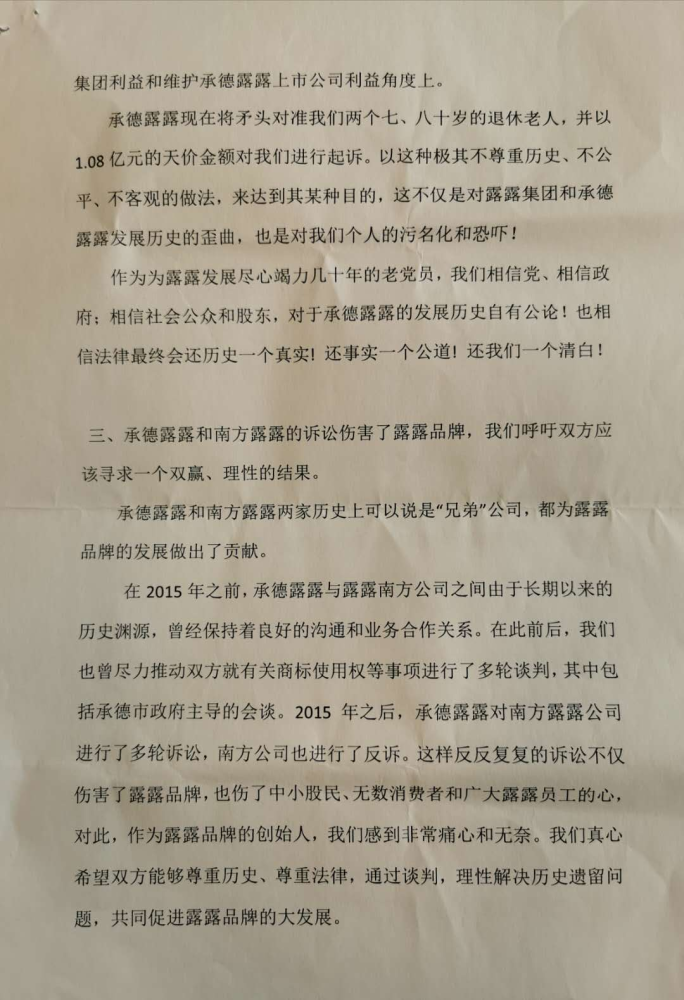 集团利益和维护承德露露上市公司利益角度上。
承德露露现在将矛头对准我们两个七、八十岁的退休老人，并以
1.08 亿元的天价金额对我们进行起诉。以这种极其不尊重历史、不公
平、不客观的做法，来达到其某种目的，这不仅是对露露集团和承德
露露发展历史的歪曲，也是对我们个人的污名化和恐吓！
作为为露露发展尽心竭力几十年的老党员，我们相信党、相信政
府；相信社会公众和股东，对于承德露露的发展历史自有公论！也相
信法律最终会还历史一个真实! 还事实一个公道! 还我们一个清白！
三、承德露露和南方露露的诉讼伤害了露露品牌，我们呼吁双方应
该寻求一个双赢、理性的结果。
承德露露和南方露露两家历史上可以说是“兄弟”公司，都为露露
品牌的发展做出了贡献。
在 2015 年之前，承德露露与露露南方公司之间由于长期以来的
历史渊源，曾经保持着良好的沟通和业务合作关系。在此前后，我们
也曾尽力推动双方就有关商标使用权等事项进行了多轮谈判，其中包
括承德市政府主导的会谈。2015 年之后，承德露露对南方露露公司
进行了多轮诉讼，南方公司也进行了反诉。这样反反复复的诉讼不仅
伤害了露露品牌，也伤了中小股民、无数消费者和广大露露员工的心，
对此，作为露露品牌的创始人，我们感到非常痛心和无奈。我们真心
希望双方能够尊重历史、尊重法律，通过谈判，理性解决历史遗留问
题，共同促进露露品牌的大发展。